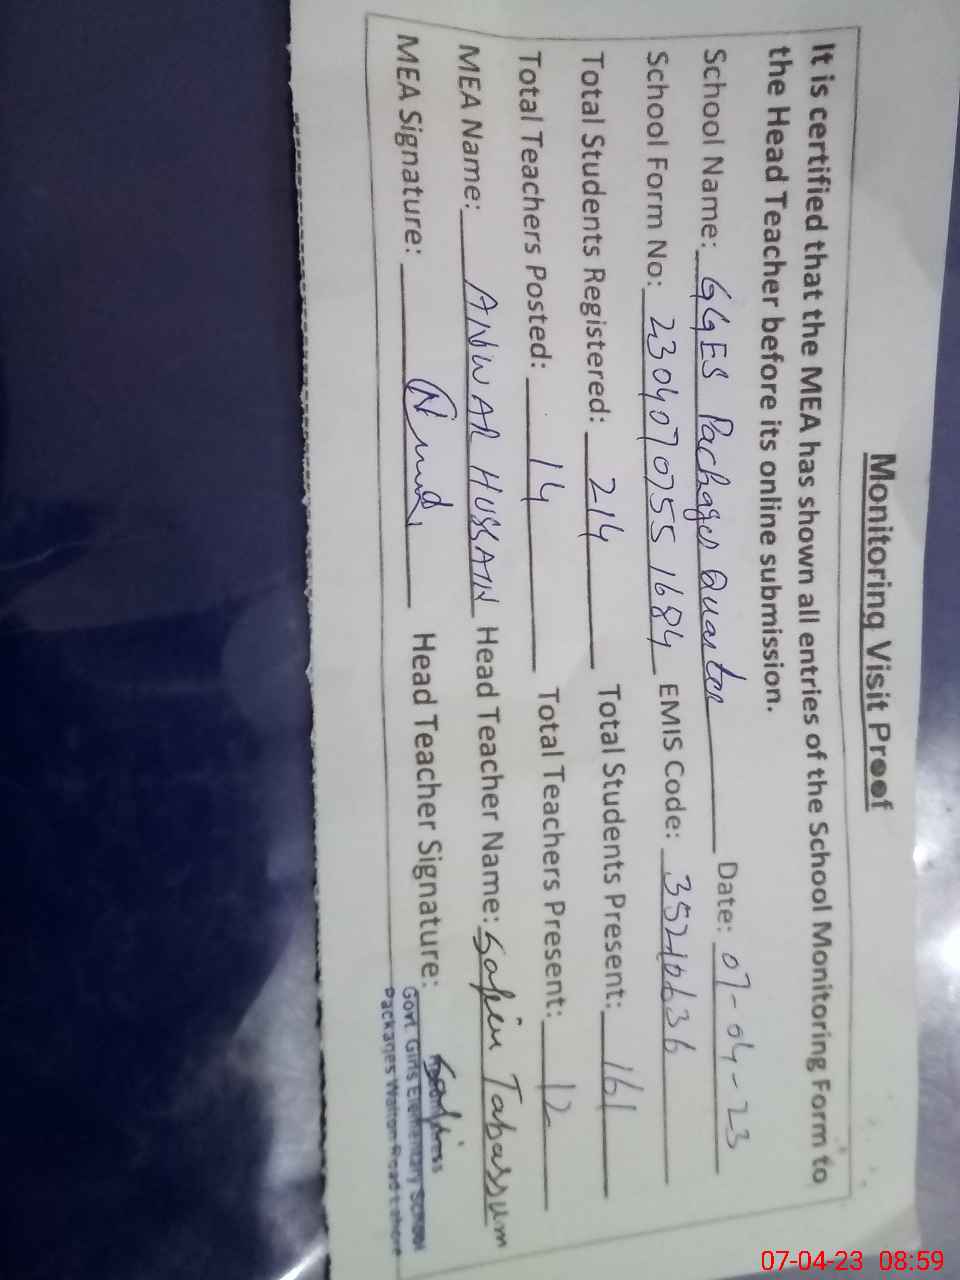 Monitoring Visit Proof
It is certified that the MEA has shown all entries of the School Monitoring Form to
the Head Teacher before its online submission.
School Name: GGES Packages Quarter Date: 07-04-23
School Form No: 2304070755 1684 EMIS Code: 35210636
Total Students Registered: 214 Total Students Present: 161
Total Teachers Posted: 14 Total Teachers Present: 12
MEA Name: ANWAR HUSSAIN Head Teacher Name: Safia Tabassum
MEA Signature: Head Teacher Signature:
Govt. Girls Elementary School
Packages Walton Road Lahore
07-04-23 08:59